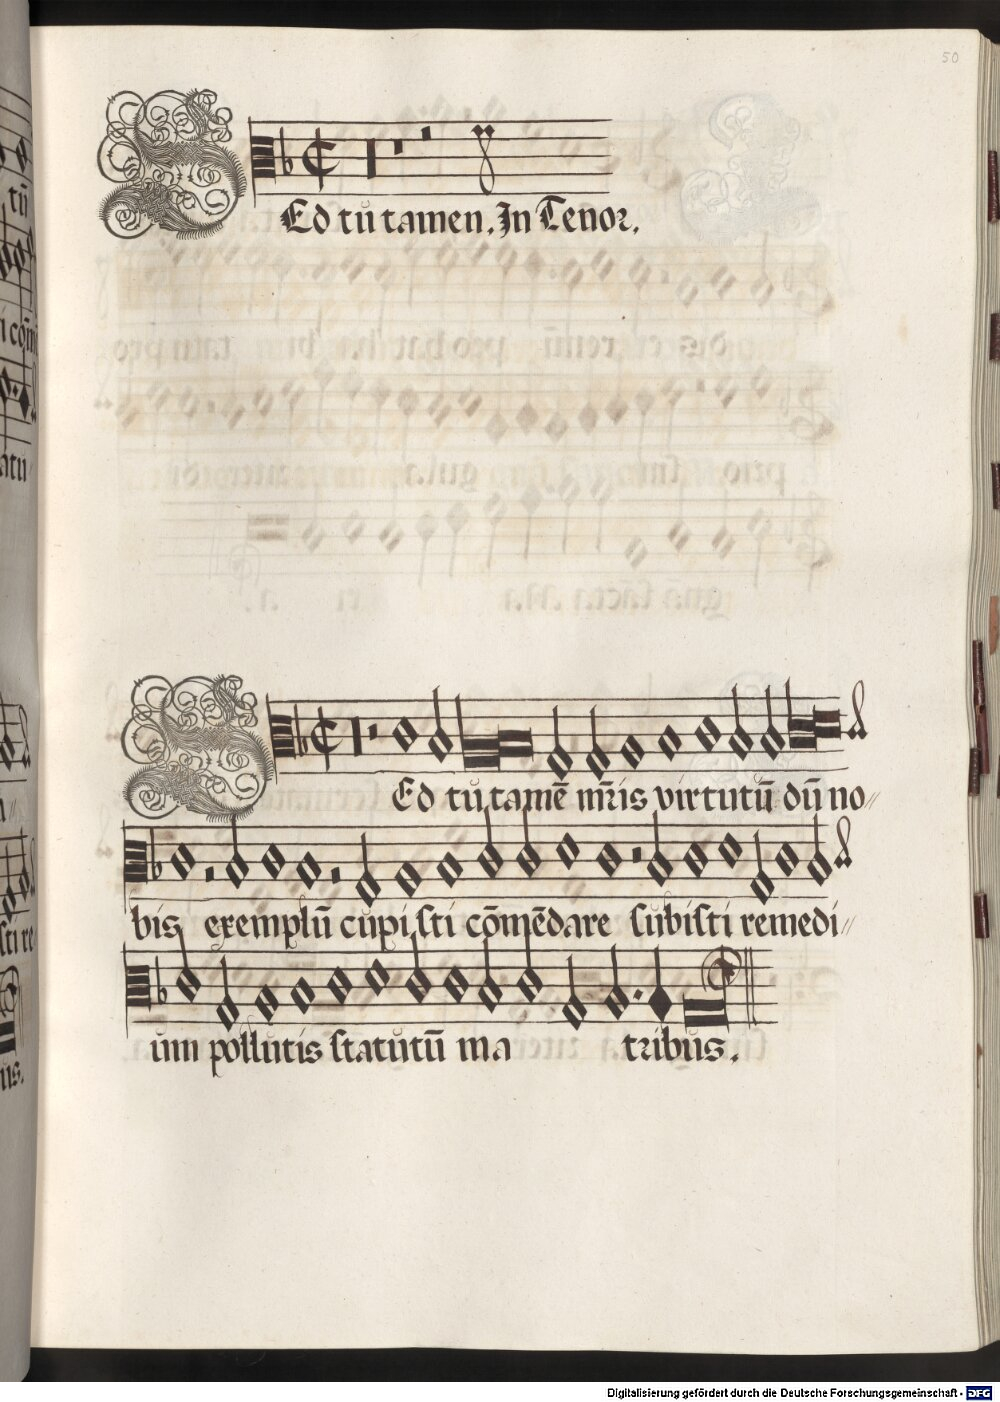 50
SEd tu tamen. In Tenor.
SEd tu tamē mr̄is virtutū dū no//
bis exemplū cupisti cōmēdare subisti remedi//
um pollutis statutū ma tribus.
Digitalisierung gefördert durch die Deutsche Forschungsgemeinschaft - DFG